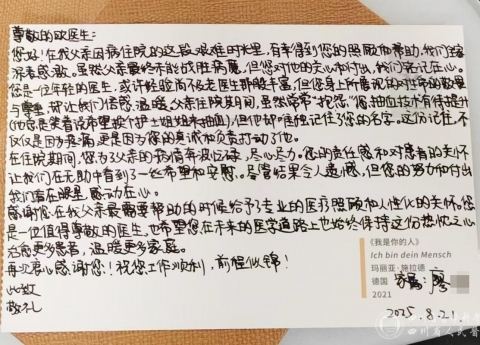 尊敬的欧医生:
您好!在我父亲因病住院的这段艰难时光里,有幸得到您的照顾和帮助,我们全家
深表感激。虽然父亲最终未能战胜病魔,但您对他的关心和付出,我们铭记在心。
您是一位年轻的医生,或许经验尚不如老医生那般丰富,但您身上所展现的对生命的敬畏
与尊重,却让我们倍感温暖。父亲住院期间,虽然常常"抱怨"您抽血技术有待提升
(他总是笑着说希望换个护士姐姐来抽血),但他却牢牢记住了您的名字。这份记住,不
仅仅是因为疼痛,更是因为您的真诚和负责打动了他。
在住院期间,您为父亲的病情奔波忙碌,尽心尽力。您的责任感和对患者的关怀
让我们在无助中看到了一丝希望和安慰。尽管结果令人遗憾,但您的努力和付出
我们看在眼里,感动在心。
感谢您在我父亲最需要帮助的时候给予了专业的医疗照顾和人性化的关怀。您
是一位值得尊敬的医生,也希望您在未来的医学道路上也始终保持这份热忱之心
去愈更多患者,温暖更多家庭。
再次衷心感谢您!祝您工作顺利,前程似锦!
此致
敬礼
《我是你的人》
Ich bin dein Mensch
玛丽亚·施拉德
德国
2021
家属:廖
2025.8.21
四川省人民医